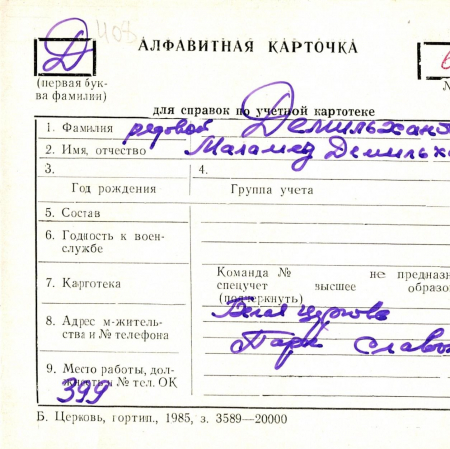 Д 408
АЛФАВИТНАЯ КАРТОЧКА
(первая бук-
ва фамилии)
для справок по учетной картотеке
1. Фамилия рядовой Демильхан
2. Имя, отчество Маламед Демильх
3.
4.
Год рождения
Группа учета
5. Состав
6. Годность к воен-
службе
7. Карготека
Команда № не предназн
спецучет высшее образо
(подчеркнуть)
8. Адрес м-житель-
ства и № телефона
Белая Церковь
Парк Славы
9. Место работы, дол-
жность и № тел. ОК
399
Б. Церковь, гортип., 1985, з. 3589—20000